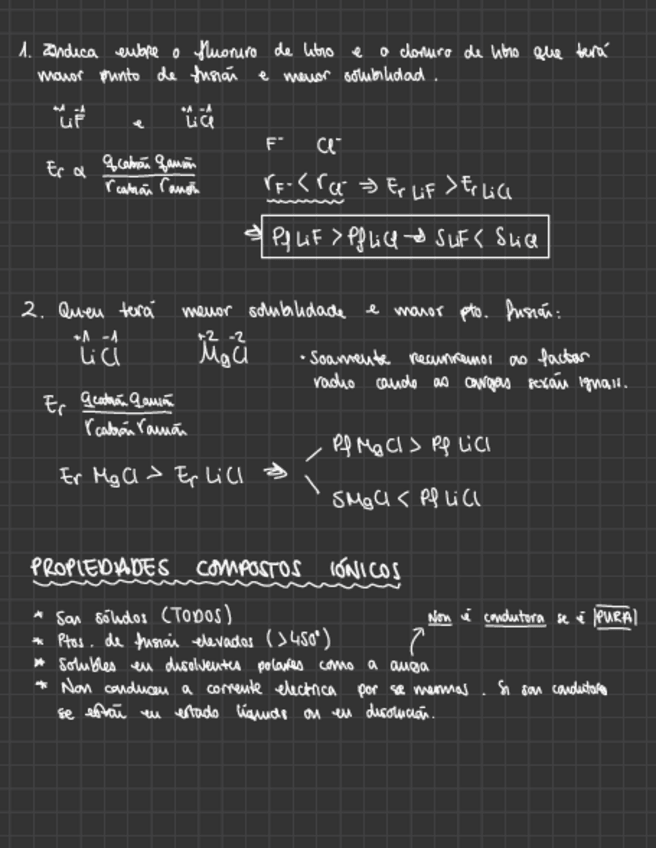 1. Indica entre o fluoruro de litio e o cloruro de litio que terá
maior punto de fusión e menor solubilidad.
+1 -1 +1 -1
LiF e LiCl
F⁻ Cl⁻
Er α qcatión qanión / rcatión ranión
rF⁻ < rCl⁻ ⇒ Er LiF > Er LiCl
⇒ Pf LiF > Pf LiCl → SLiF < SLiCl
2. Quen terá menor solubilidade e maior pto. fusión:
+1 -1 +2 -2
LiCl MgCl
· Soamente recurriremos ao factor
radio cando as cargas serán iguais.
Er qcatión qanión / rcatión ranión
Er MgCl > Er LiCl ⇒
Pf MgCl > Pf LiCl
SMgCl < Pf LiCl
PROPIEDADES COMPOSTOS IÓNICOS
* San sólidos (TODOS)
Non é condutora se é PURA
* Ptos. de fusión elevados (>450°)
* Solubles en disolventes polares como a auga
* Non conducen a corrente electrica por se mesmas. Si son condutores
se están en estado líquido ou en disolución.